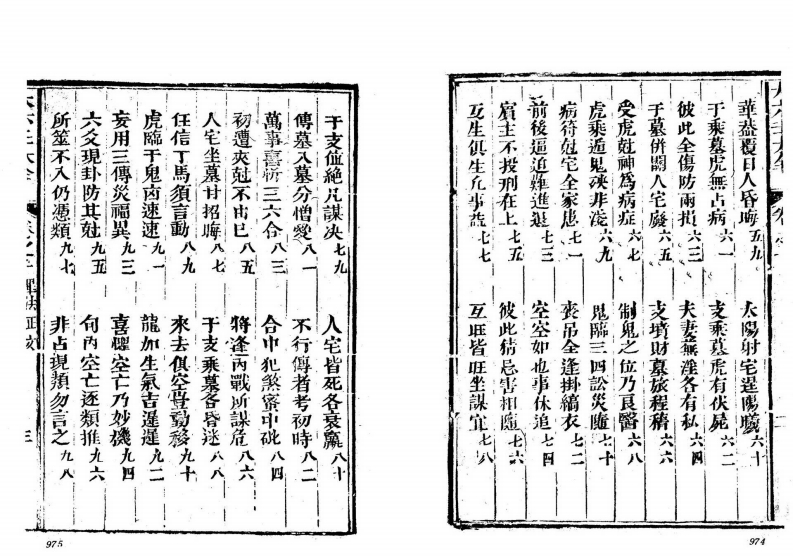 華葢覆日人昏晦 五九
太陽射宅屋 六十
干乘墓虎無占病 六一
支乘墓虎有伏屍 六二
彼此全傷防兩損 六三
夫妻蕪淫各有私 六四
干墓併關人宅廢 六五
支墳財墓旅程稽 六六
受虎尅神為病症 六七
制鬼之位乃良醫 六八
虎乘遁鬼殃非淺 六九
鬼臨三四訟災隨 七十
病符尅宅全家患 七一
喪弔全逢掛縞衣 七二
前後逼迫難進退 七三
空空如也事休追 七四
賓主不投刑在上 七五
彼此猜忌害相隨 七六
互生俱生凡事益 七七
互旺皆旺坐謀宜 七八
974
干支值絕凡謀决 七九
人宅皆死各衰羸 八十
傳墓入墓分憎愛 八一
不行傳者考初時 八二
萬事喜忻三六合 八三
合中犯煞蜜中砒 八四
初遭夾尅不由己 八五
將逢內戰所謀危 八六
人宅坐墓甘招晦 八七
干支乘墓各昏迷 八八
任信丁馬須言動 八九
來去俱空豈動移 九十
虎臨干鬼凶速速 九一
龍加生氣吉遲遲 九二
妄用三傳災福異 九三
喜懼空亡乃妙機 九四
六爻現卦防其尅 九五
旬內空亡逐類推 九六
所筮不入仍憑類 九七
非占現類勿言之 九八
大六壬大全
三
975